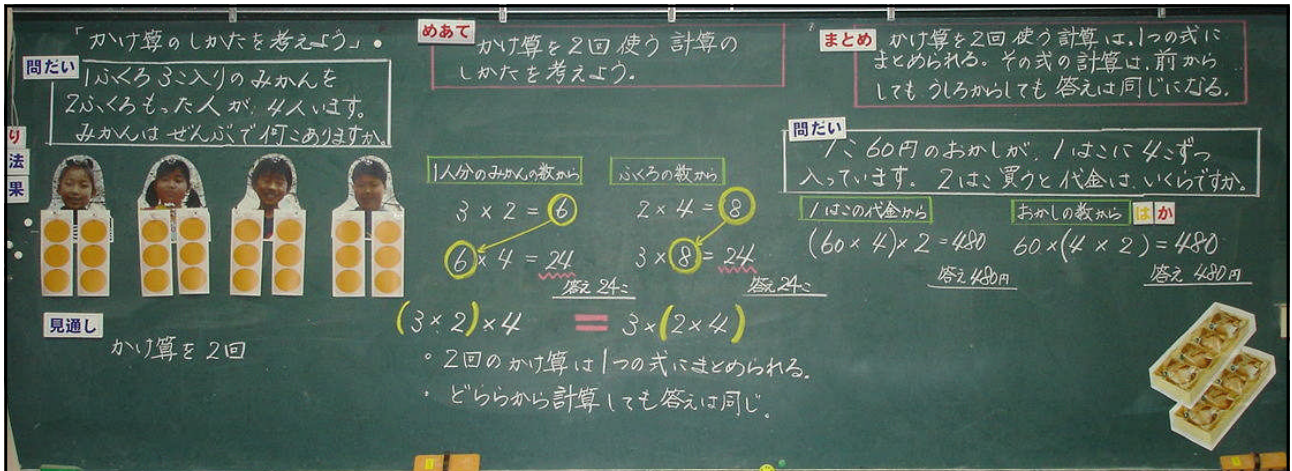 「かけ算のしかたを考えよう」
問だい
1ふくろ3こ入りのみかんを
2ふくろもった人が、4人います。
みかんはぜんぶで何こありますか。
り
法
果
見通し
かけ算を2回
めあて
かけ算を2回使う計算の
しかたを考えよう。
1人分のみかんの数から
3×2=6
6×4=24
答え24こ
ふくろの数から
2×4=8
3×8=24
答え24こ
(3×2)×4 = 3×(2×4)
。2回のかけ算は1つの式にまとめられる。
・どららから計算しても答えは同じ。
まとめ
かけ算を2回使う計算は、1つの式に
まとめられる。その式の計算は、前から
してもうしろからしても答えは同じになる。
問だい
1こ60円のおかしが、1はこに4こずつ
入っています。2はこ買うと代金は、いくらですか。
1はこの代金から
(60×4)×2=480
答え480円
おかしの数から
はか
60×(4×2)=480
答え480円